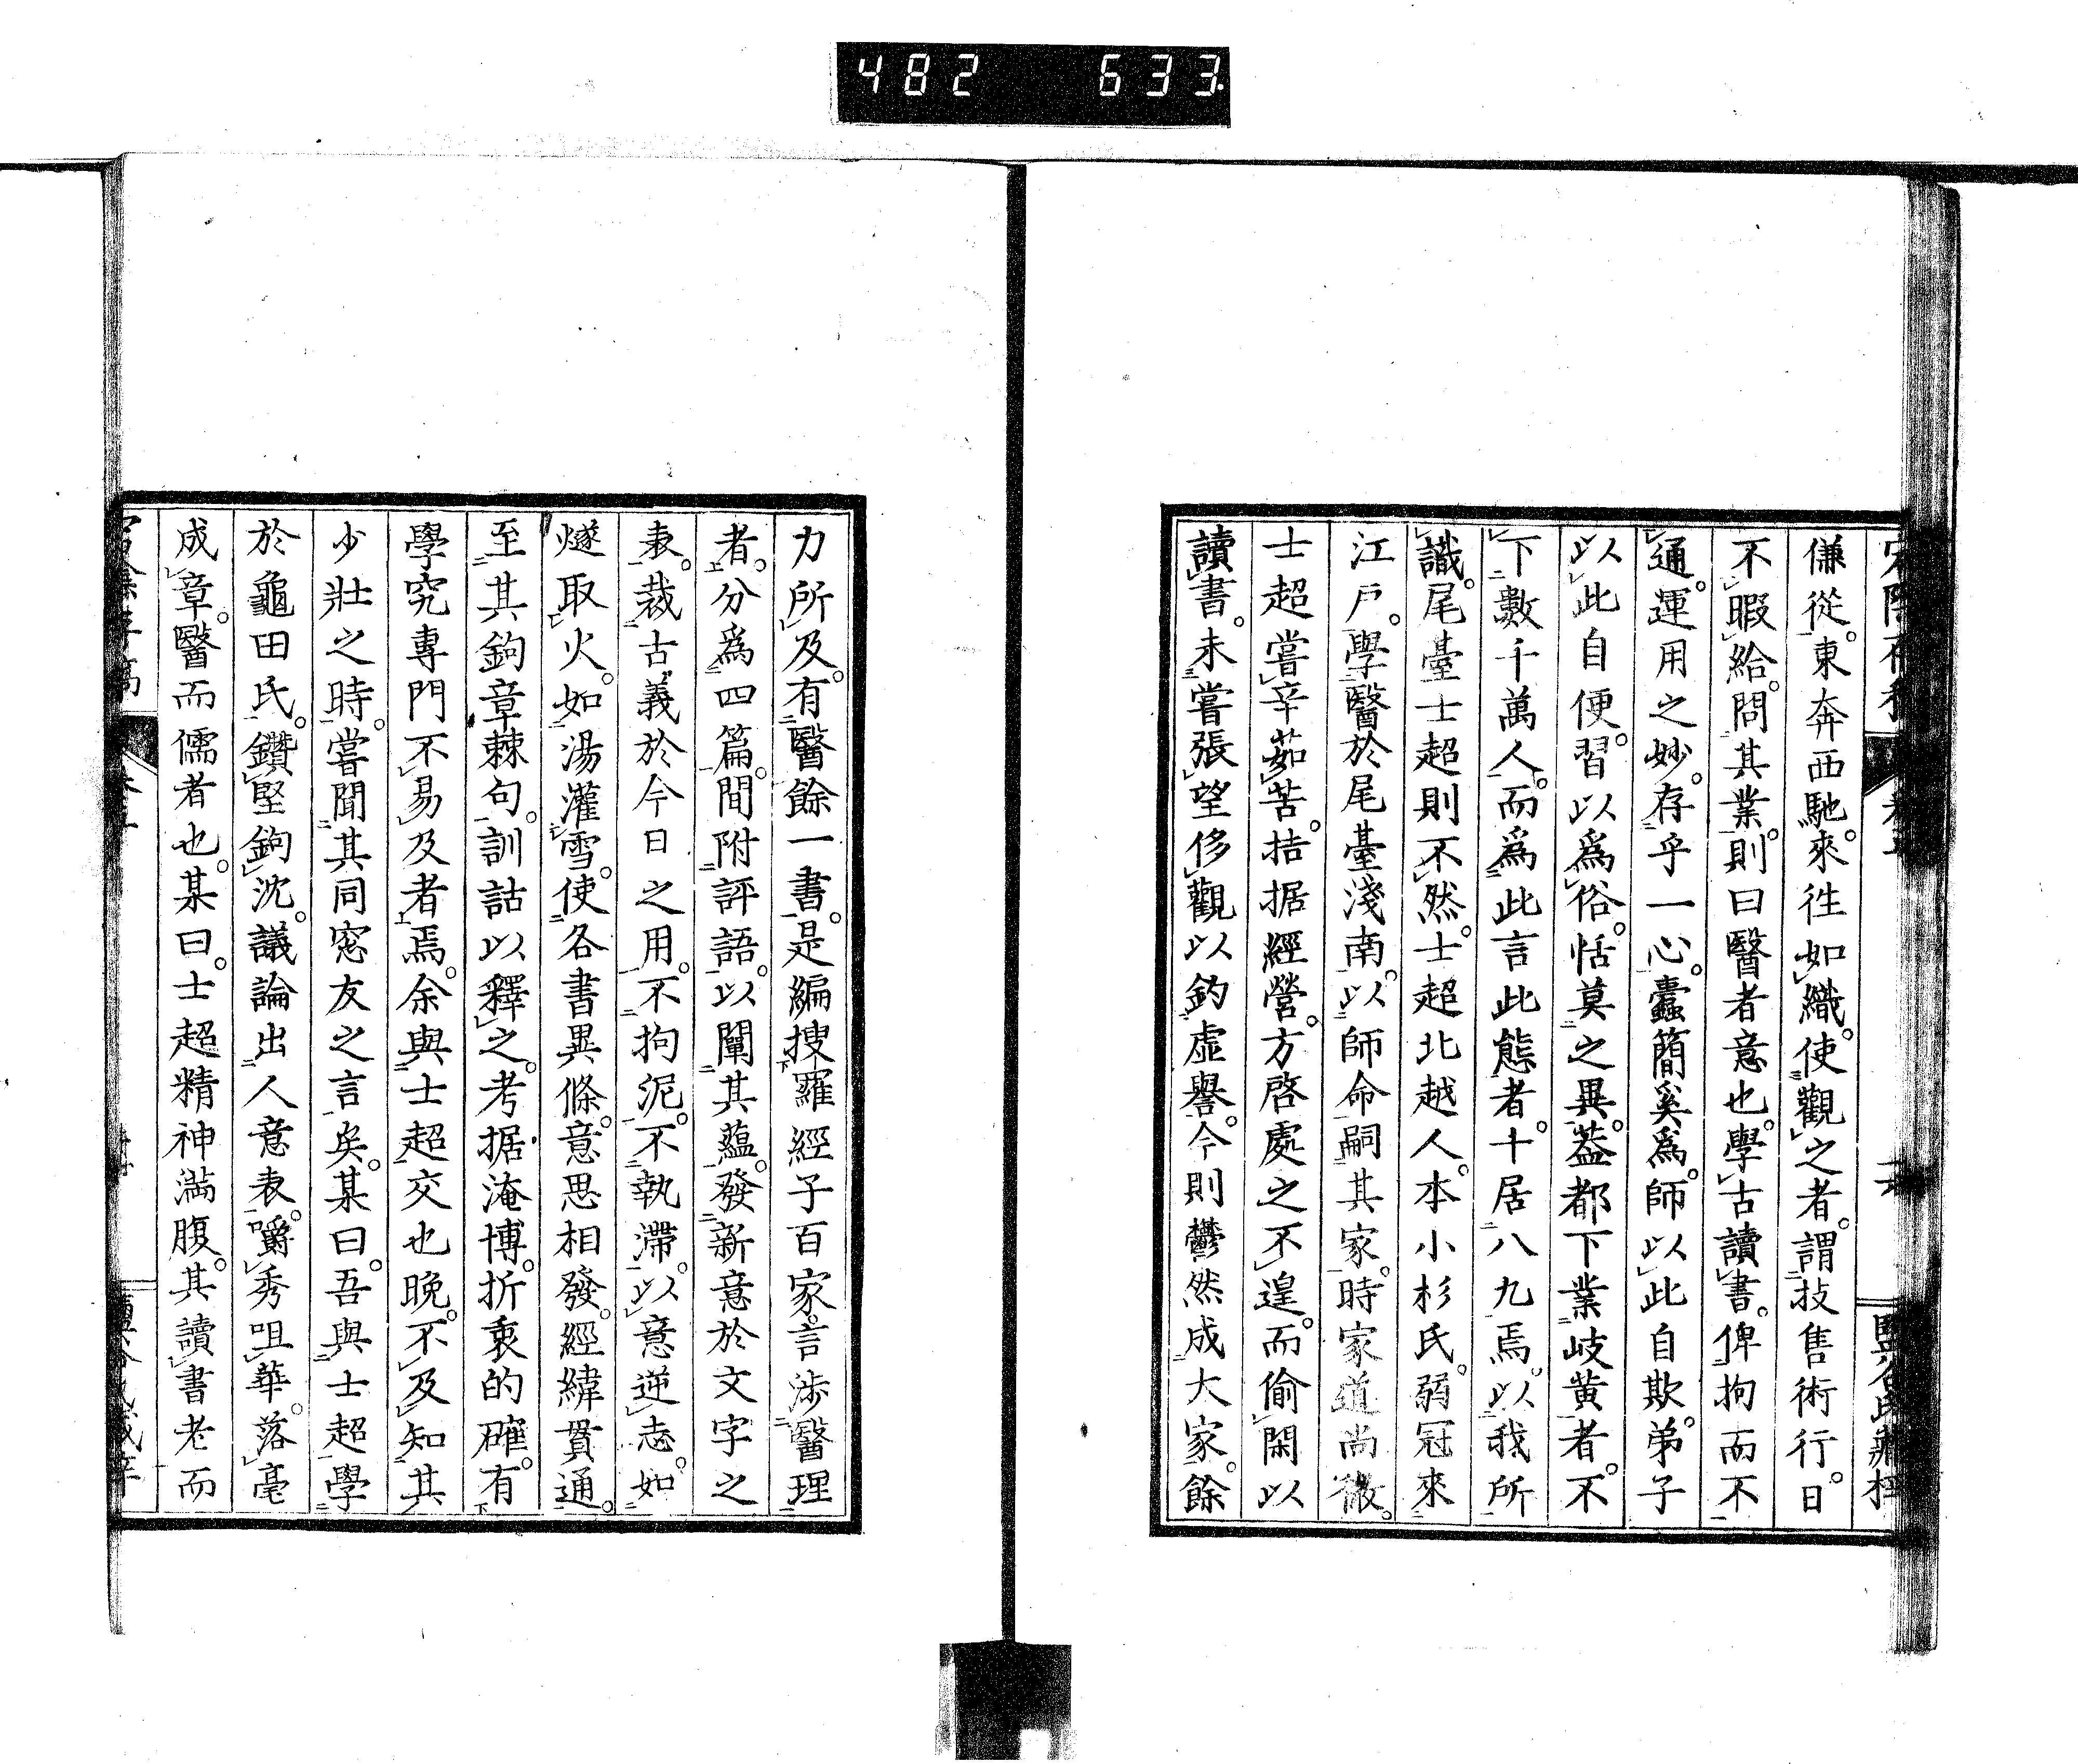 482 633
傔從。東奔西馳。來往如織。使觀之者。謂技售術行。日
不暇給。問其業。則曰醫者意也。學古讀書。俾拘而不
通。運用之妙。存乎一心。蠹簡奚爲。師以此自欺。弟子
以此自便。習以爲俗。恬莫之異。葢都下業岐黄者。不
下數千萬人。而爲此言此態者。十居八九焉。以我所
識。尾臺士超則不然。士超北越人。本小杉氏。弱冠來
江戶。學醫於尾臺淺南。以師命嗣其家。時家道尚微。
士超嘗辛茹苦。拮据經營。方啓處之不遑。而偷閑以
讀書。未嘗張望侈觀以釣虛譽。今則鬱然成大家。餘
力所及。有醫餘一書。是編搜羅經子百家。言涉醫理
者。分爲四篇。間附評語。以闡其蘊。發新意於文字之
表。裁古義於今日之用。不拘泥。不執滯。以意逆志。如
燧取火。如湯灌雪。使各書異條。意思相發。經緯貫通。
至其鉤章棘句。訓詁以釋之。考据淹博。折衷的確。有
學究專門不易及者焉。余與士超交也晚。不及知其
少壯之時。嘗聞其同窓友之言矣。某曰。吾與士超學
於龜田氏。鑽堅鉤沈。議論出人意表。嚼秀咀華。落毫
成章。醫而儒者也。某曰。士超精神滿腹。其讀書老而